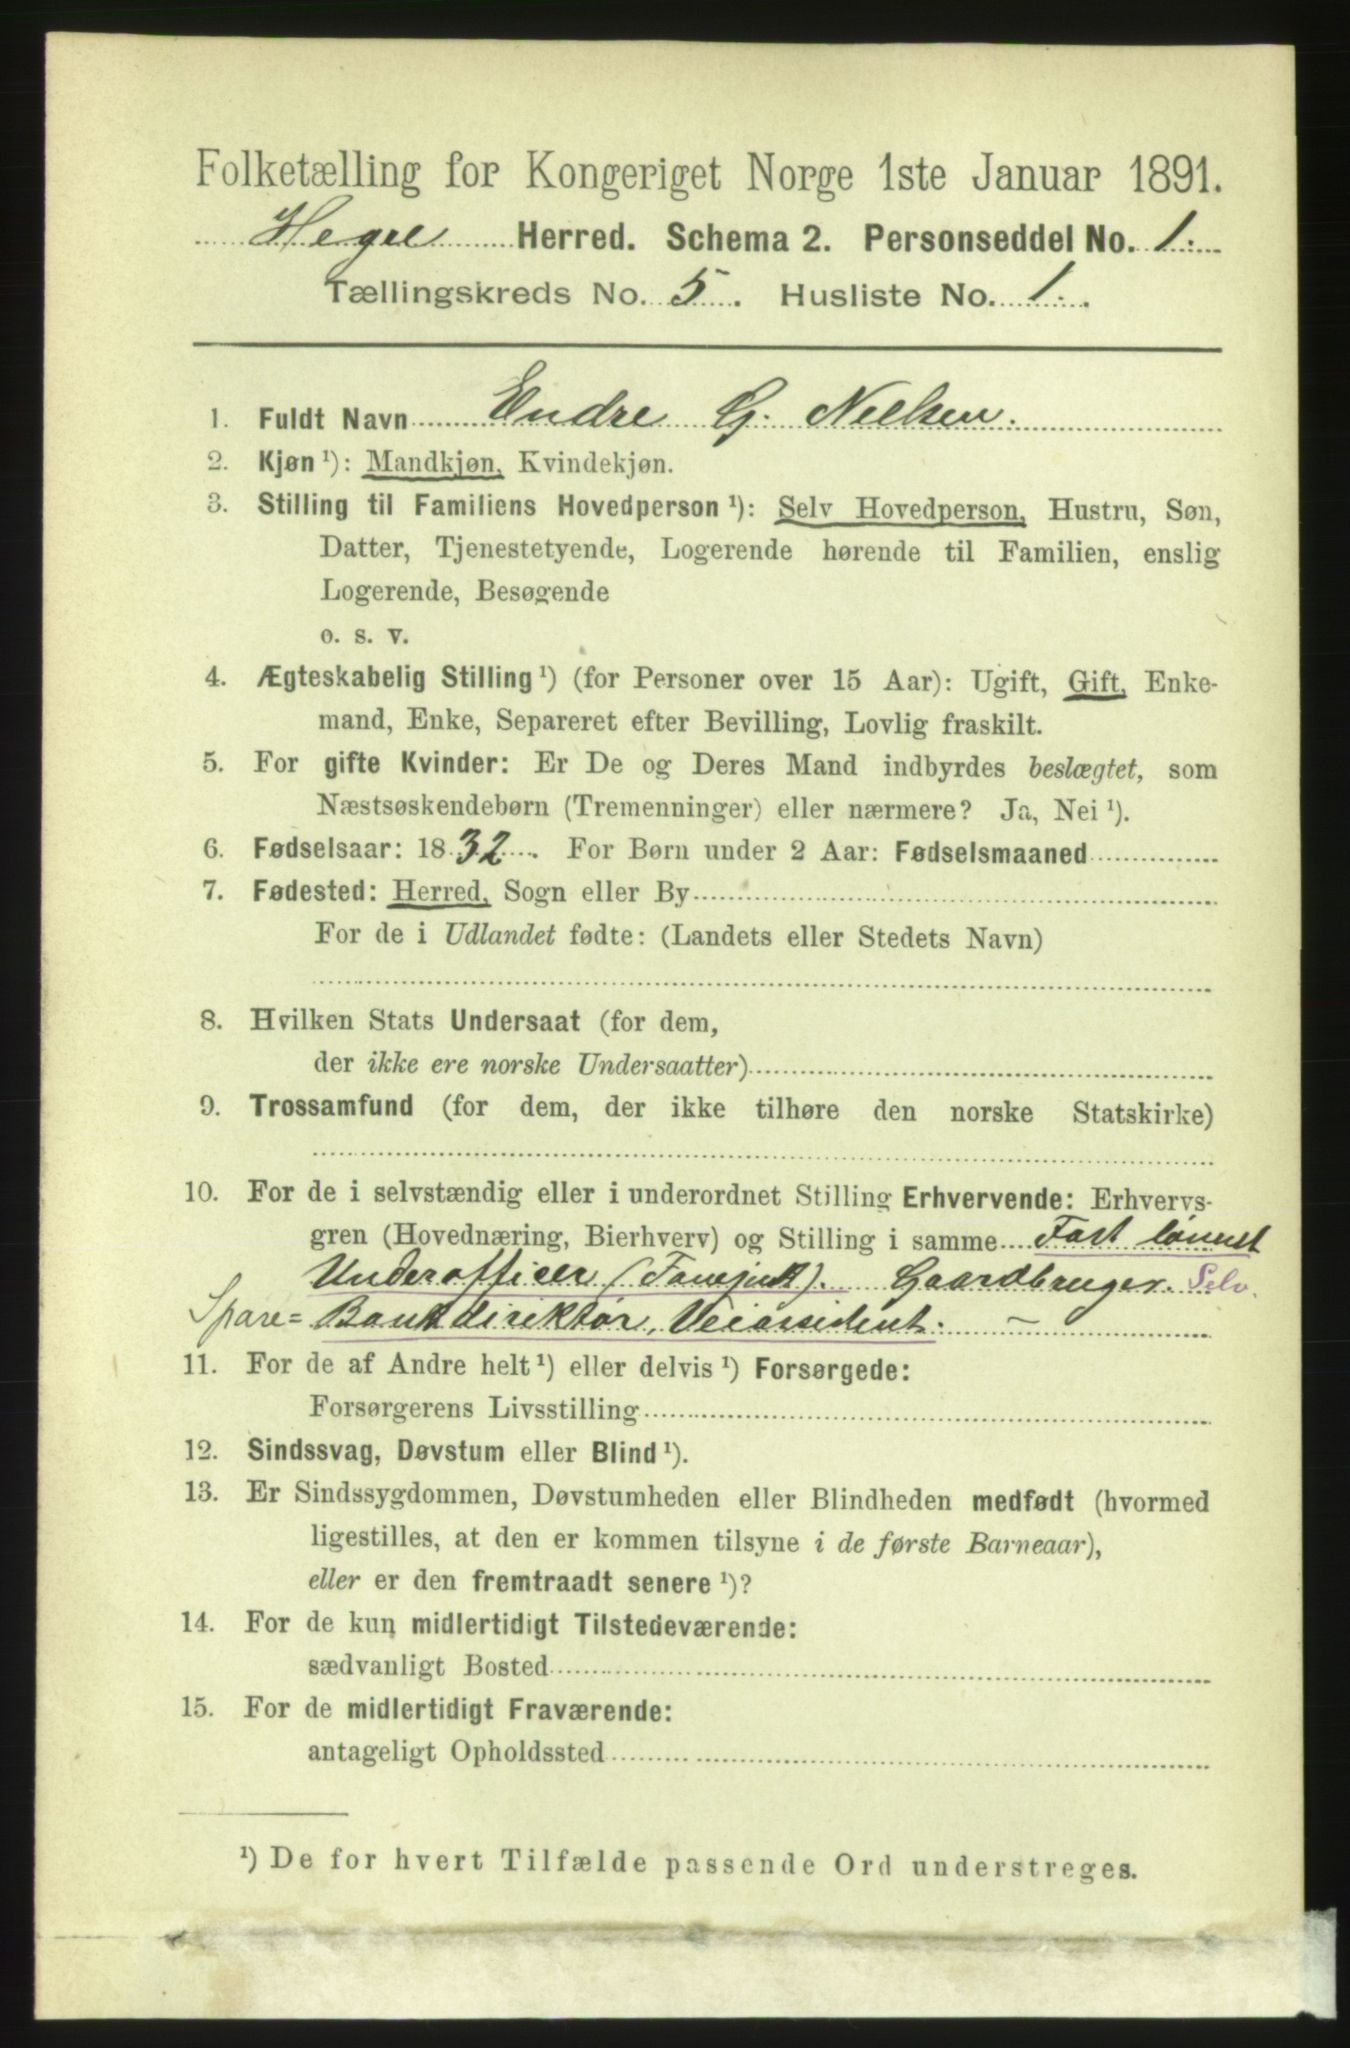 Folketælling for Kongeriget Norge 1ste Januar 1891.
Hegre Herred. Schema 2. Personseddel No. 1.
Tællingskreds No. 5. Husliste No. 1.
1. Fuldt Navn Endre G. Nielsen.
2. Kjøn ¹): Mandkjøn, Kvindekjøn.
3. Stilling til Familiens Hovedperson ¹): Selv Hovedperson, Hustru, Søn,
Datter, Tjenestetyende, Logerende hørende til Familien, enslig
Logerende, Besøgende
o. s. v.
4. Ægteskabelig Stilling ¹) (for Personer over 15 Aar): Ugift, Gift, Enke-
mand, Enke, Separeret efter Bevilling, Lovlig fraskilt.
5. For gifte Kvinder: Er De og Deres Mand indbyrdes beslægtet, som
Næstsøskendebørn (Tremenninger) eller nærmere? Ja, Nei ¹).
6. Fødselsaar: 1832. For Børn under 2 Aar: Fødselsmaaned
7. Fødested: Herred, Sogn eller By
For de i Udlandet fødte: (Landets eller Stedets Navn)
8. Hvilken Stats Undersaat (for dem,
der ikke ere norske Undersaatter)
9. Trossamfund (for dem, der ikke tilhøre den norske Statskirke)
10. For de i selvstændig eller i underordnet Stilling Erhvervende: Erhvervs-
gren (Hovednæring, Bierhverv) og Stilling i samme Fast lønnet
Underofficer (Fanejunk). Gaardbruger. Selv.
Spare= Bankdirektør, Veiassistent. —
11. For de af Andre helt ¹) eller delvis ¹) Forsørgede:
Forsørgerens Livsstilling
12. Sindssvag, Døvstum eller Blind ¹).
13. Er Sindssygdommen, Døvstumheden eller Blindheden medfødt (hvormed
ligestilles, at den er kommen tilsyne i de første Barneaar),
eller er den fremtraadt senere ¹)?
14. For de kun midlertidigt Tilstedeværende:
sædvanligt Bosted
15. For de midlertidigt Fraværende:
antageligt Opholdssted
¹) De for hvert Tilfælde passende Ord understreges.